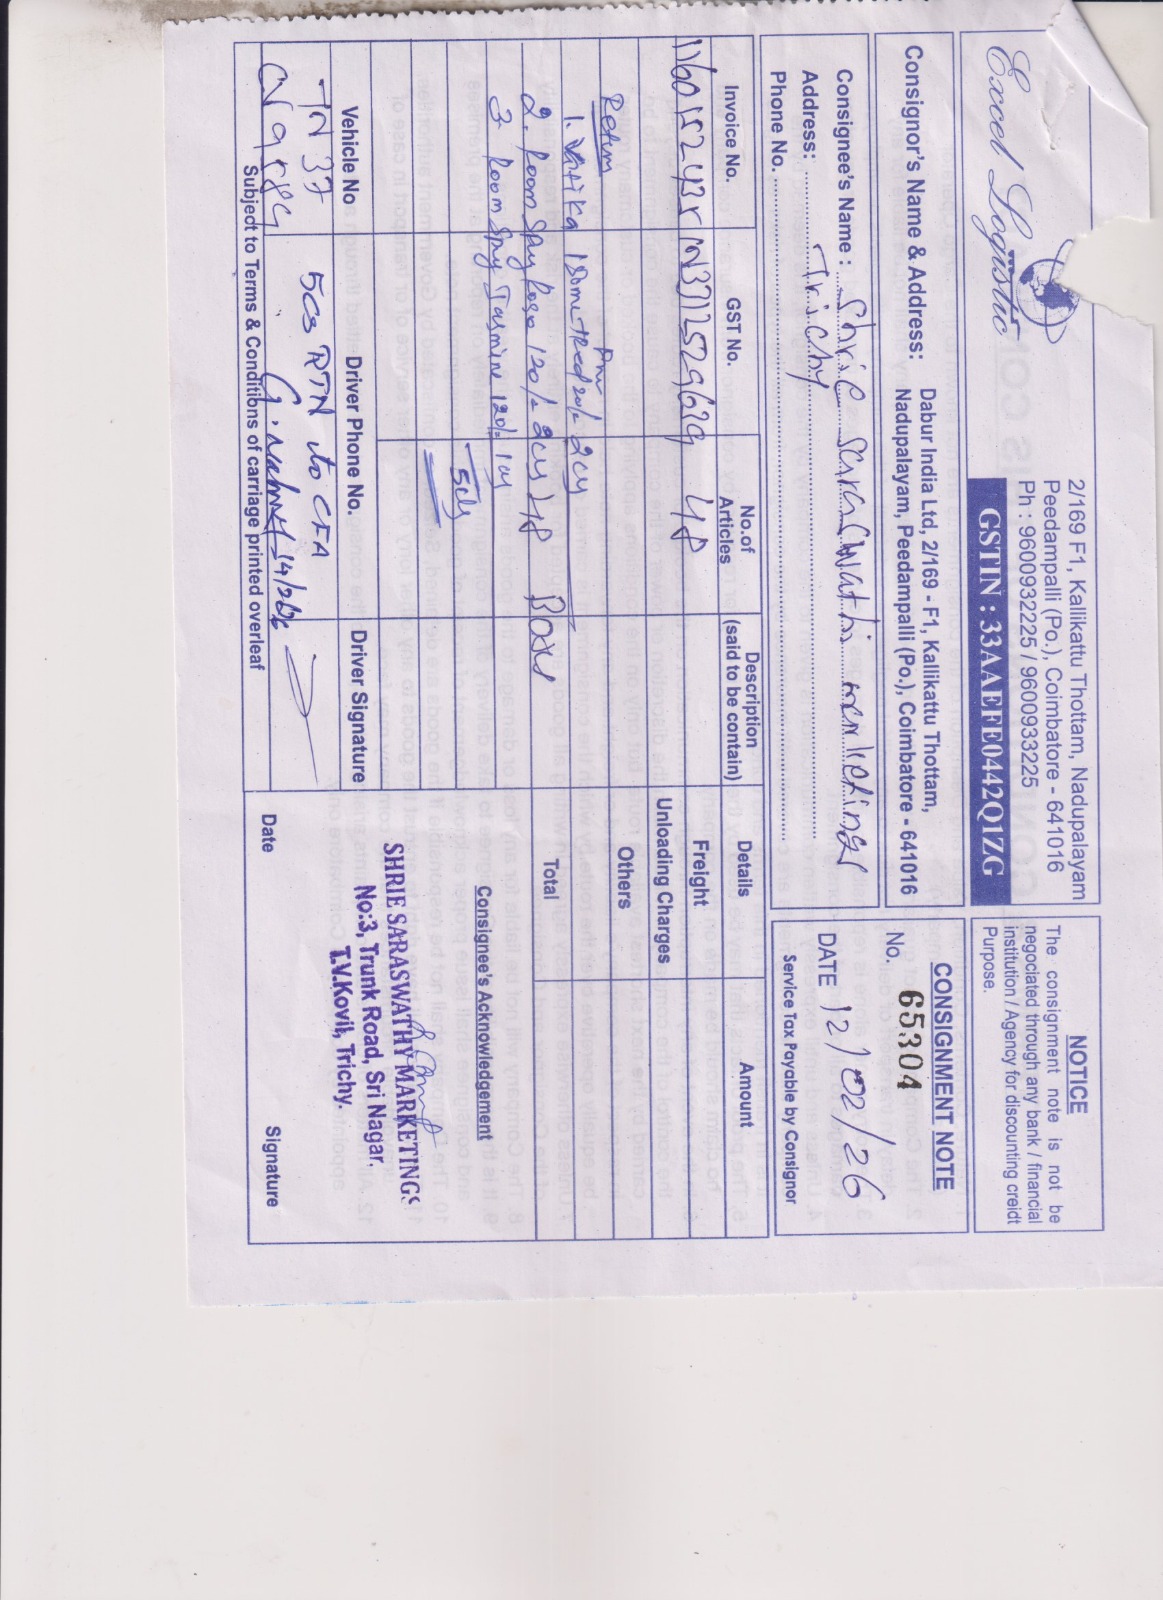 Excel Logistic
2/169 F1, Kallikattu Thottam, Nadupalayam
Peedampalli (Po.), Coimbatore - 641016
Ph : 9600932225 / 9600933225
GSTIN : 33AAEFE0442Q1ZG
NOTICE
The consignment note is not be
negotiated through any bank / financial
institution / Agency for discounting creidt
Purpose.
Consignor's Name & Address: Dabur India Ltd, 2/169 - F1, Kallikattu Thottam,
Nadupalayam, Peedampalli (Po.), Coimbatore - 641016
CONSIGNMENT NOTE
No. 65304
Consignee's Name : Shrie Saraswathi marketings
Address: Trichy
Phone No.
DATE 12/02/26
Service Tax Payable by Consignor
Invoice No. GST No. No.of Articles Description (said to be contain) Details Amount
48
Freight
Unloading Charges
Return
Others
1. Vatika 180ml 2cs
2. Room Spry 120/- 2cs 48 Boxs
Total
3. Room Spry Jasmine 120/- 1cs
5cs
Consignee's Acknowledgement
SHRIE SARASWATHY MARKETINGS
No:3, Trunk Road, Sri Nagar,
T.V.Kovil, Trichy.
Vehicle No Driver Phone No. Driver Signature
TN 37 5cs RTN to CFA
CN 9589
14/2/26
Date Signature
Subject to Terms & Conditions of carriage printed overleaf